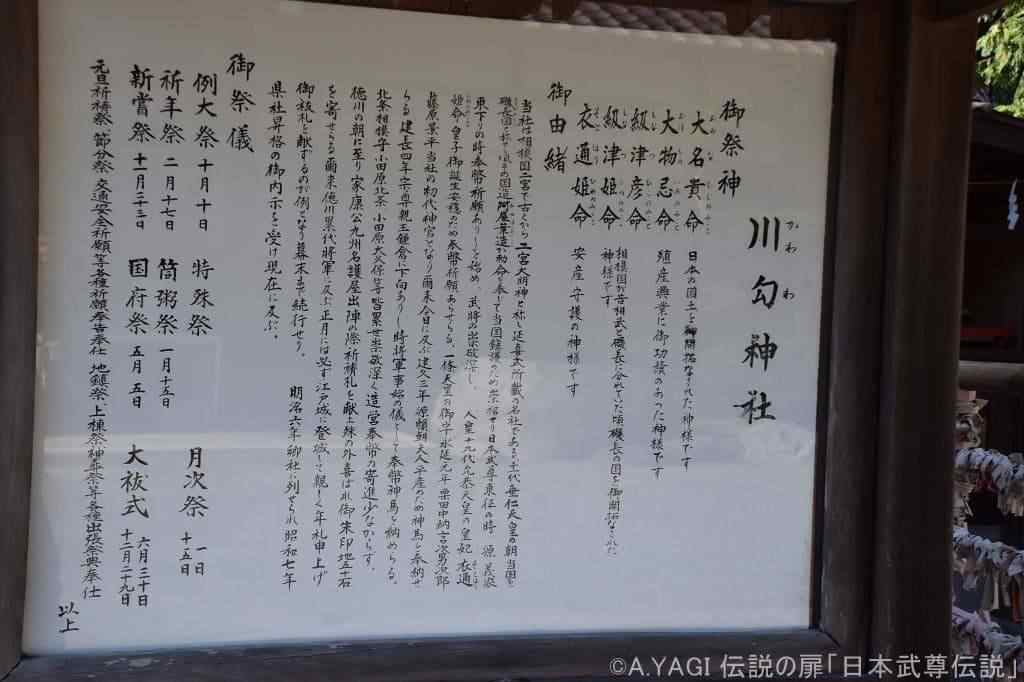 川勾神社
かわわ
御祭神
大名貴命 日本の国土を御開拓なされた神様です
大物忌命 殖産興業に御功績のあった神様です
級津彦命
級津姫命 相模国が昔相武と磯長に分れていた頃磯長の国を御開拓なされた
神様です
衣通姫命 安産守護の神様です
御由緒
当社は相模国二宮で古くから二宮大明神と称し延喜式所載の名社である十一代垂仁天皇の朝当国を
東下りの時奉幣祈願ありしを始め、武将の崇敬深し。人皇十九代允恭天皇の皇妃衣通
姫命皇子御誕生安穏のため奉幣祈願あらせらる。一條天皇の御宇永延元年粟田中納言次男次郎
藤原景平当社の初代神官となり爾来今日に及ぶ建久三年源頼朝夫人平産のため神馬を奉納せ
らる建長四年宗尊親王鎌倉に下向あり し時将軍事始の儀として奉幣神馬を納めらる。
北条相模守小田原北条小田原大久保等 累世崇敬深く造営奉幣の寄進少なからず。
徳川の朝に至り家康公九州名護屋出陣の際祈祷札を献上殊の外喜ばれ御朱印地五十石
を寄せらる爾来徳川累代将軍に及ぶ正月には必ず江戸城へ登城して親しく年礼申上げ
御祓札を献ずるのが例となり幕末まで続行せり。 明治六年郷社に列せられ昭和七年
県社昇格の御内示を受け現在に及ぶ。
御祭儀
例大祭 十月十日 特殊祭 月次祭 一日 十五日
祈年祭 二月十七日 筒粥祭 一月十五日
新嘗祭 十一月二十三日 国府祭 五月五日 大祓式 六月三十日 十二月二十九日
元旦祈祷祭、節分祭、交通安全祈願等各種祈願奉告奉仕 地鎮祭、上棟祭神葬祭等各種出張祭典奉仕
以上
©A.YAGI 伝説の扉「日本武尊伝説」